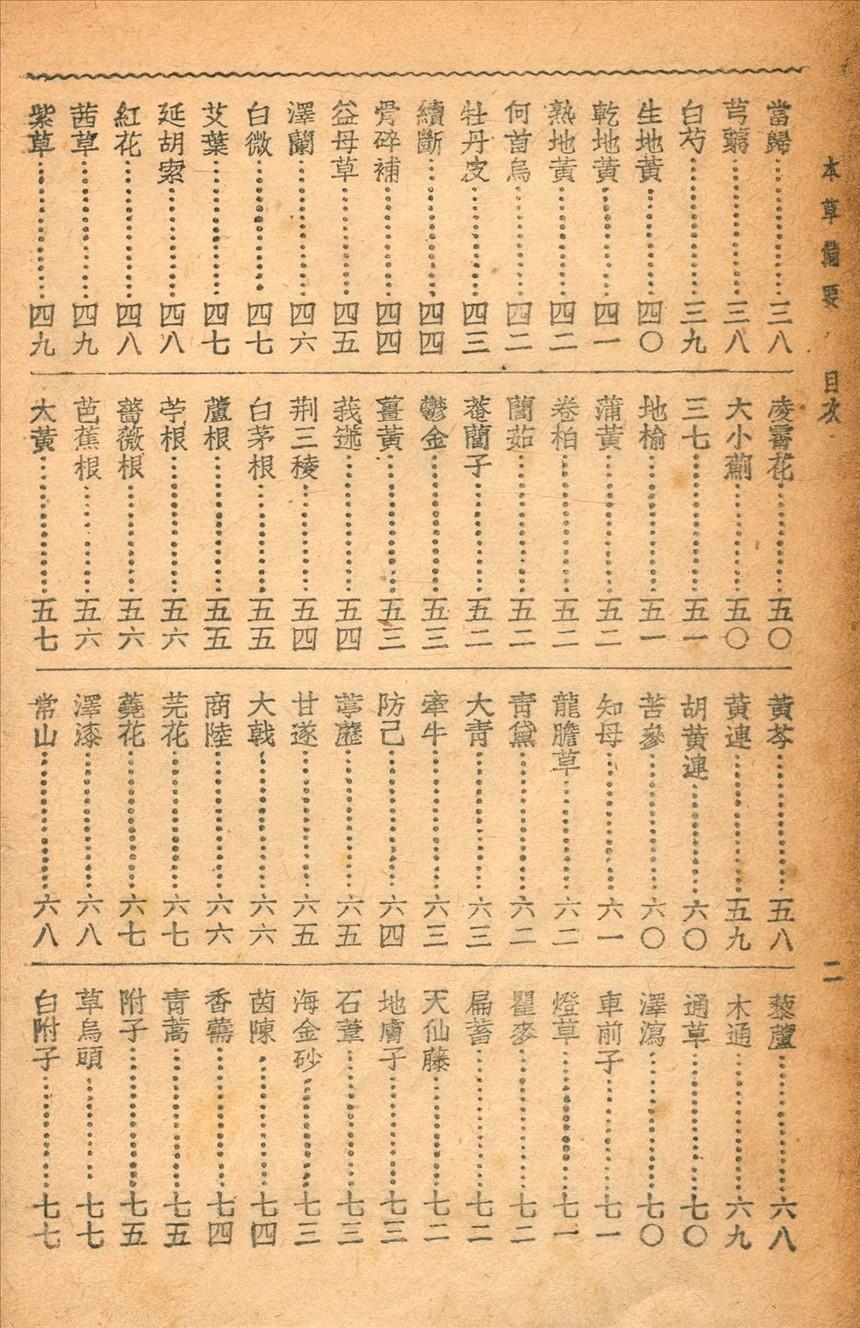 本草備要 目次
二
當歸……三八
芎藭……三八
白芍……三九
生地黃……四〇
乾地黃……四一
熟地黃……四二
何首烏……四二
牡丹皮……四三
續斷……四四
骨碎補……四四
益母草……四五
澤蘭……四六
白微……四七
艾葉……四七
延胡索……四八
紅花……四八
茜草……四九
紫草……四九
凌霄花……五〇
大小薊……五〇
三七……五一
地榆……五一
蒲黃……五二
卷柏……五二
蕳茹……五二
菴蕳子……五二
鬱金……五三
薑黃……五三
莪蒁……五四
荆三稜……五四
白茅根……五五
蘆根……五五
苧根……五六
薔薇根……五六
芭蕉根……五六
大黃……五七
黃芩……五八
黃連……五九
胡黃連……六〇
苦參……六〇
知母……六一
龍膽草……六二
靑黛……六二
大靑……六三
牽牛……六三
防己……六四
葶藶……六五
甘遂……六五
大戟……六六
商陸……六六
芫花……六七
蕘花……六七
澤漆……六八
常山……六八
藜蘆……六八
木通……六九
通草……七〇
澤瀉……七〇
車前子……七一
燈草……七一
瞿麥……七二
扁蓄……七二
天仙藤……七二
地膚子……七三
石葦……七三
海金砂……七三
茵陳……七四
香薷……七四
靑蒿……七五
附子……七五
草烏頭……七七
白附子……七七